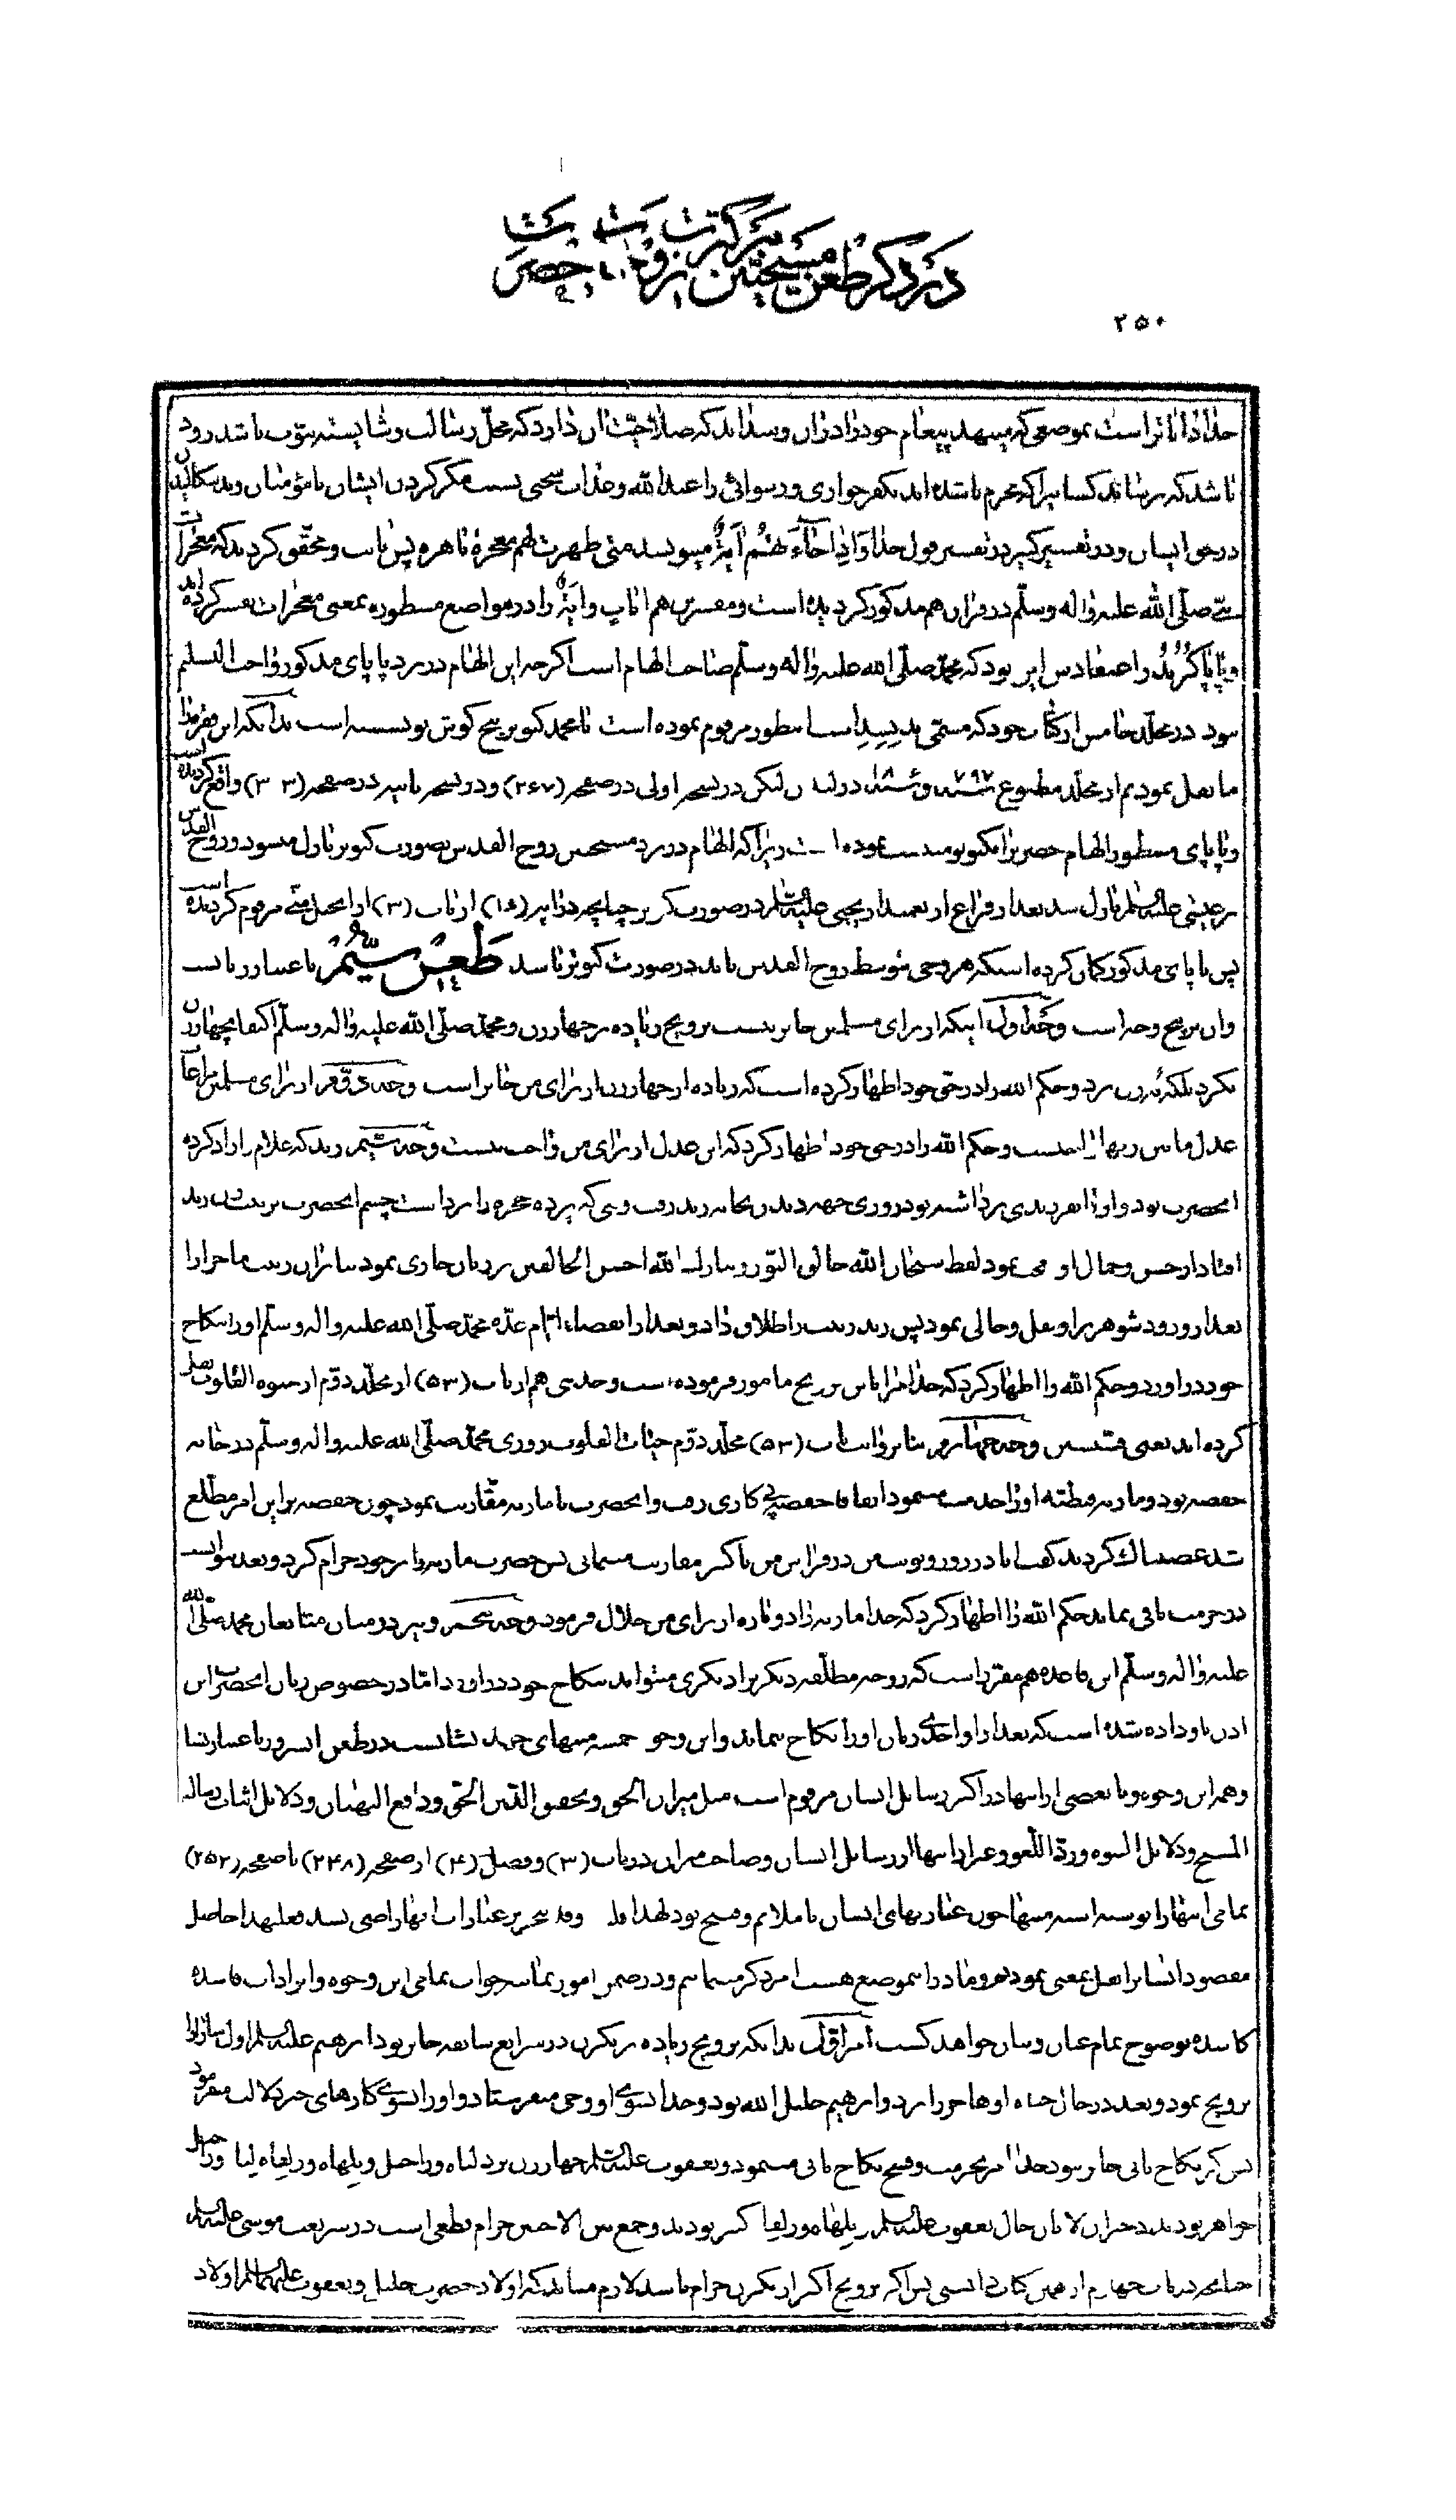 در ذکر طعن مسیحیین بر کثرت زوجات حضرت
۲۵۰
خدا داناتر است بموضعی که مینهد پیغام خود را در آن و میداند که صلاحیت آن دارد که محلّ رسالت و شایسته نبوّت باشد زود
باشد که برساند کسانیرا که مجرم باشده اند بکفر خواری و رسوائی را عند الله و عذاب سختی بسبب مکر کردن ایشان با مؤمنان و بدسگالیدن
در خواب ایشان و در تفسیر کبیر در تفسیر قول خدا وَاِذا جآءَ تهُم آیَةٌ مینویسد متی ظهرت لهم معجزة باهرة پس ثابت و محقّق کردید که معجزات
نبی صلّی الله علیه و اله و سلّم در قران هم مذکور گردیده است و مفسرین هم آیات و آیة را در مواضع مسطوره بمعنی معجزات تفسیر کرده اند
و پاپا را اعتقادش این بود که محمّد صلّی الله علیه و اله و سلّم صاحب الهام است اکرچه این الهام در نزد پاپای مذکور واجب التسلیم
نبود در مجلّد خامس از کتاب خود که مسمّی به است باینطور مرقوم نموده است یا محمد کبوتر بیخ کوش تو نشسته است بدانکه این فقره را
ما نقل نمودیم از مجلّد مطبوع سنه ۱۷۹۷ و سنه در لندن لیکن در نسخه اولی در صفحه (۲۶۷) و در نسخه ثانیه در صفحه (۳۰۳) واقع کردیده است
و پاپای مسطور الهام حضرترا بکبوتر نسبت نموده است زیرا که الهام در نزد مسیحیین روح القدس بصورت کبوتر نازل میشود و روح القدس
بر عیسی علیه السّلام نازل شد بعد از فراغ از تعمید از یحیی علیه السّلام در صورت کبوتر چنانچه در ایه (۱۶) از باب (۳) از انجیل متی مرقوم کردیده است
پس پاپای مذکور گمان کرده است که هر وحی بتوسط روح القدس باید در صورت کبوتر باشد طعن سیّم باعتبار زنانست
و ان بر پنج وجه است وجه اول اینکه از برای مسلمین جایز نیست تزویج زیاده بر چهار زن و محمّد صلّی الله علیه و اله و سلّم اکتفا بچهار زن
نکرد بلکه نه زن برد و حکم الله را در حق خود اظهار کرده است که زیاده از چهار زن از برای من جایز است وجه دوّم از برای مسلمین مراعات
عدل مابین زنها واجبست و حکم الله را در حق خود اظهار کرد که این عدل از برای من واجب نیست وجه سیّم زید که غلام ازاد کرده
انحضرت بود و او را بفرزندی برداشته بود روزی جهة دیدن بخانه زید رفت وقتی که پرده حجره را برداشت چشم انحضرت بزینت زن زید
افتاد از حسن و جمال او تعجب نمود لفظ سبحان الله خالق النّور و تبارک الله احسن الخالقین بر زبان جاری نمود بنا براین زینب ماجرا را
بعد از ورود شوهر برا و نقل و حالی نمود پس زید زینب را طلاق داد و بعد از انقضاء ایام عدّه محمّد صلّی الله علیه و اله و سلّم او را بنکاح
خود در اورد و حکم الله را اظهار کرد که خدا مرا باین تزویج مامور فرموده است و حدیثی هم از باب (۵۳) از مجلّد دوّم از حیوه القلوب نقل
کرده اند یعنی قسیسین وجه چهارم بنابر روایت باب (۵۳) مجلّد دوّم حیات القلوب روزی محمّد صلّی الله علیه و اله و سلّم در خانه
حفصه بود و ماریه قبطیه او را خدمت مینمود اتفاقا حفصه پی کاری رفت و انحضرت با ماریه مقاربت نمود چون حفصه بر این امر مطّلع
شد غضبناک کردید گفت ایا در روز و نوبت من در فراش من با کنیز مقاربت مینمائی پس حضرت ماریه را بر خود حرام کرد و بعد نتوانست
در حرمت باقی بماند حکم الله را اظهار کرد که خدا ماریه را دوباره از برای من حلال فرمود وجه پنجم و نیز در میان متابعان محمد صلّی الله
علیه و اله و سلّم این قاعده هم مقرّر است که زوجه مطلّقه دیگریرا دیگری میتواند بنکاح خود در اورد امّا در خصوص زنان انحضرت این
اذن باو داده نشده است که بعد از او احدی زنان او را نکاح نماید و این وجوه خمسه منتهای جهد نصاراست در طعن انسرور باعتبار نسا
و همه این وجوه و یا بعضی از اینها در اکثر رسائل ایشان مرقوم است مثل میزان الحق و تحقیق الدّین الحق و دافع البهتان و دلائل اثبات رساله
المسیح و دلائل النبوه و ردّ اللّغو و غیر اینها از رسائل ایشان و صاحب میزان در باب (۳) و فصل (۴) از صفحه (۲۴۸) تا صفحه (۲۵۲)
تمامی اینها را نوشته است منتها چون عبارتهای ایشان ناملایم و قبیح بود لهذا قلم بتحریر عبارات انها راضی نشد فعلیهذا حاصل
مقصود ایشانرا نقل بمعنی نمودیم و ما در اینموضع هشت امر ذکر مینمائیم و در ضمن امور ثمانیه جواب تمامی این وجوه و ایرادات فاسده
کاسده بوضوح تمام عیان و بیان خواهد کشت امر اوّل بدانکه تزویج زیاده بر یکزن در شرایع سابقه جایز بود ابرهیم علیه السلام اول سارا را
تزویج نمود و بعد در حال حیاه او هاجر را برد و ابرهیم خلیل الله بود و خدا بسوی او وحی میفرستاد و او را بسوی کارهای خیر دلالت میفرمود
پس اگر نکاح ثانی جایز نبود خدا امر بحرمت و فسخ نکاح ثانی مینمود و یعقوب علیه السّلام چهار زن برد لیاه و راحیل و بلهاه و زلفاه لیا و راحیل
خواهر بودند دختران لابان خال یعقوب علیه السلام و بلهاه و زلفا کنیز بودند و جمع بین الاختین حرام قطعی است در شریعت موسی علیه السلام
چنانچه در باب چهارم از همین کتاب دانستی پس اگر تزویج اکثر از یکزن حرام باشد لازم میاید که اولاد حضرت خلیل و یعقوب علیهما السلام اولاد